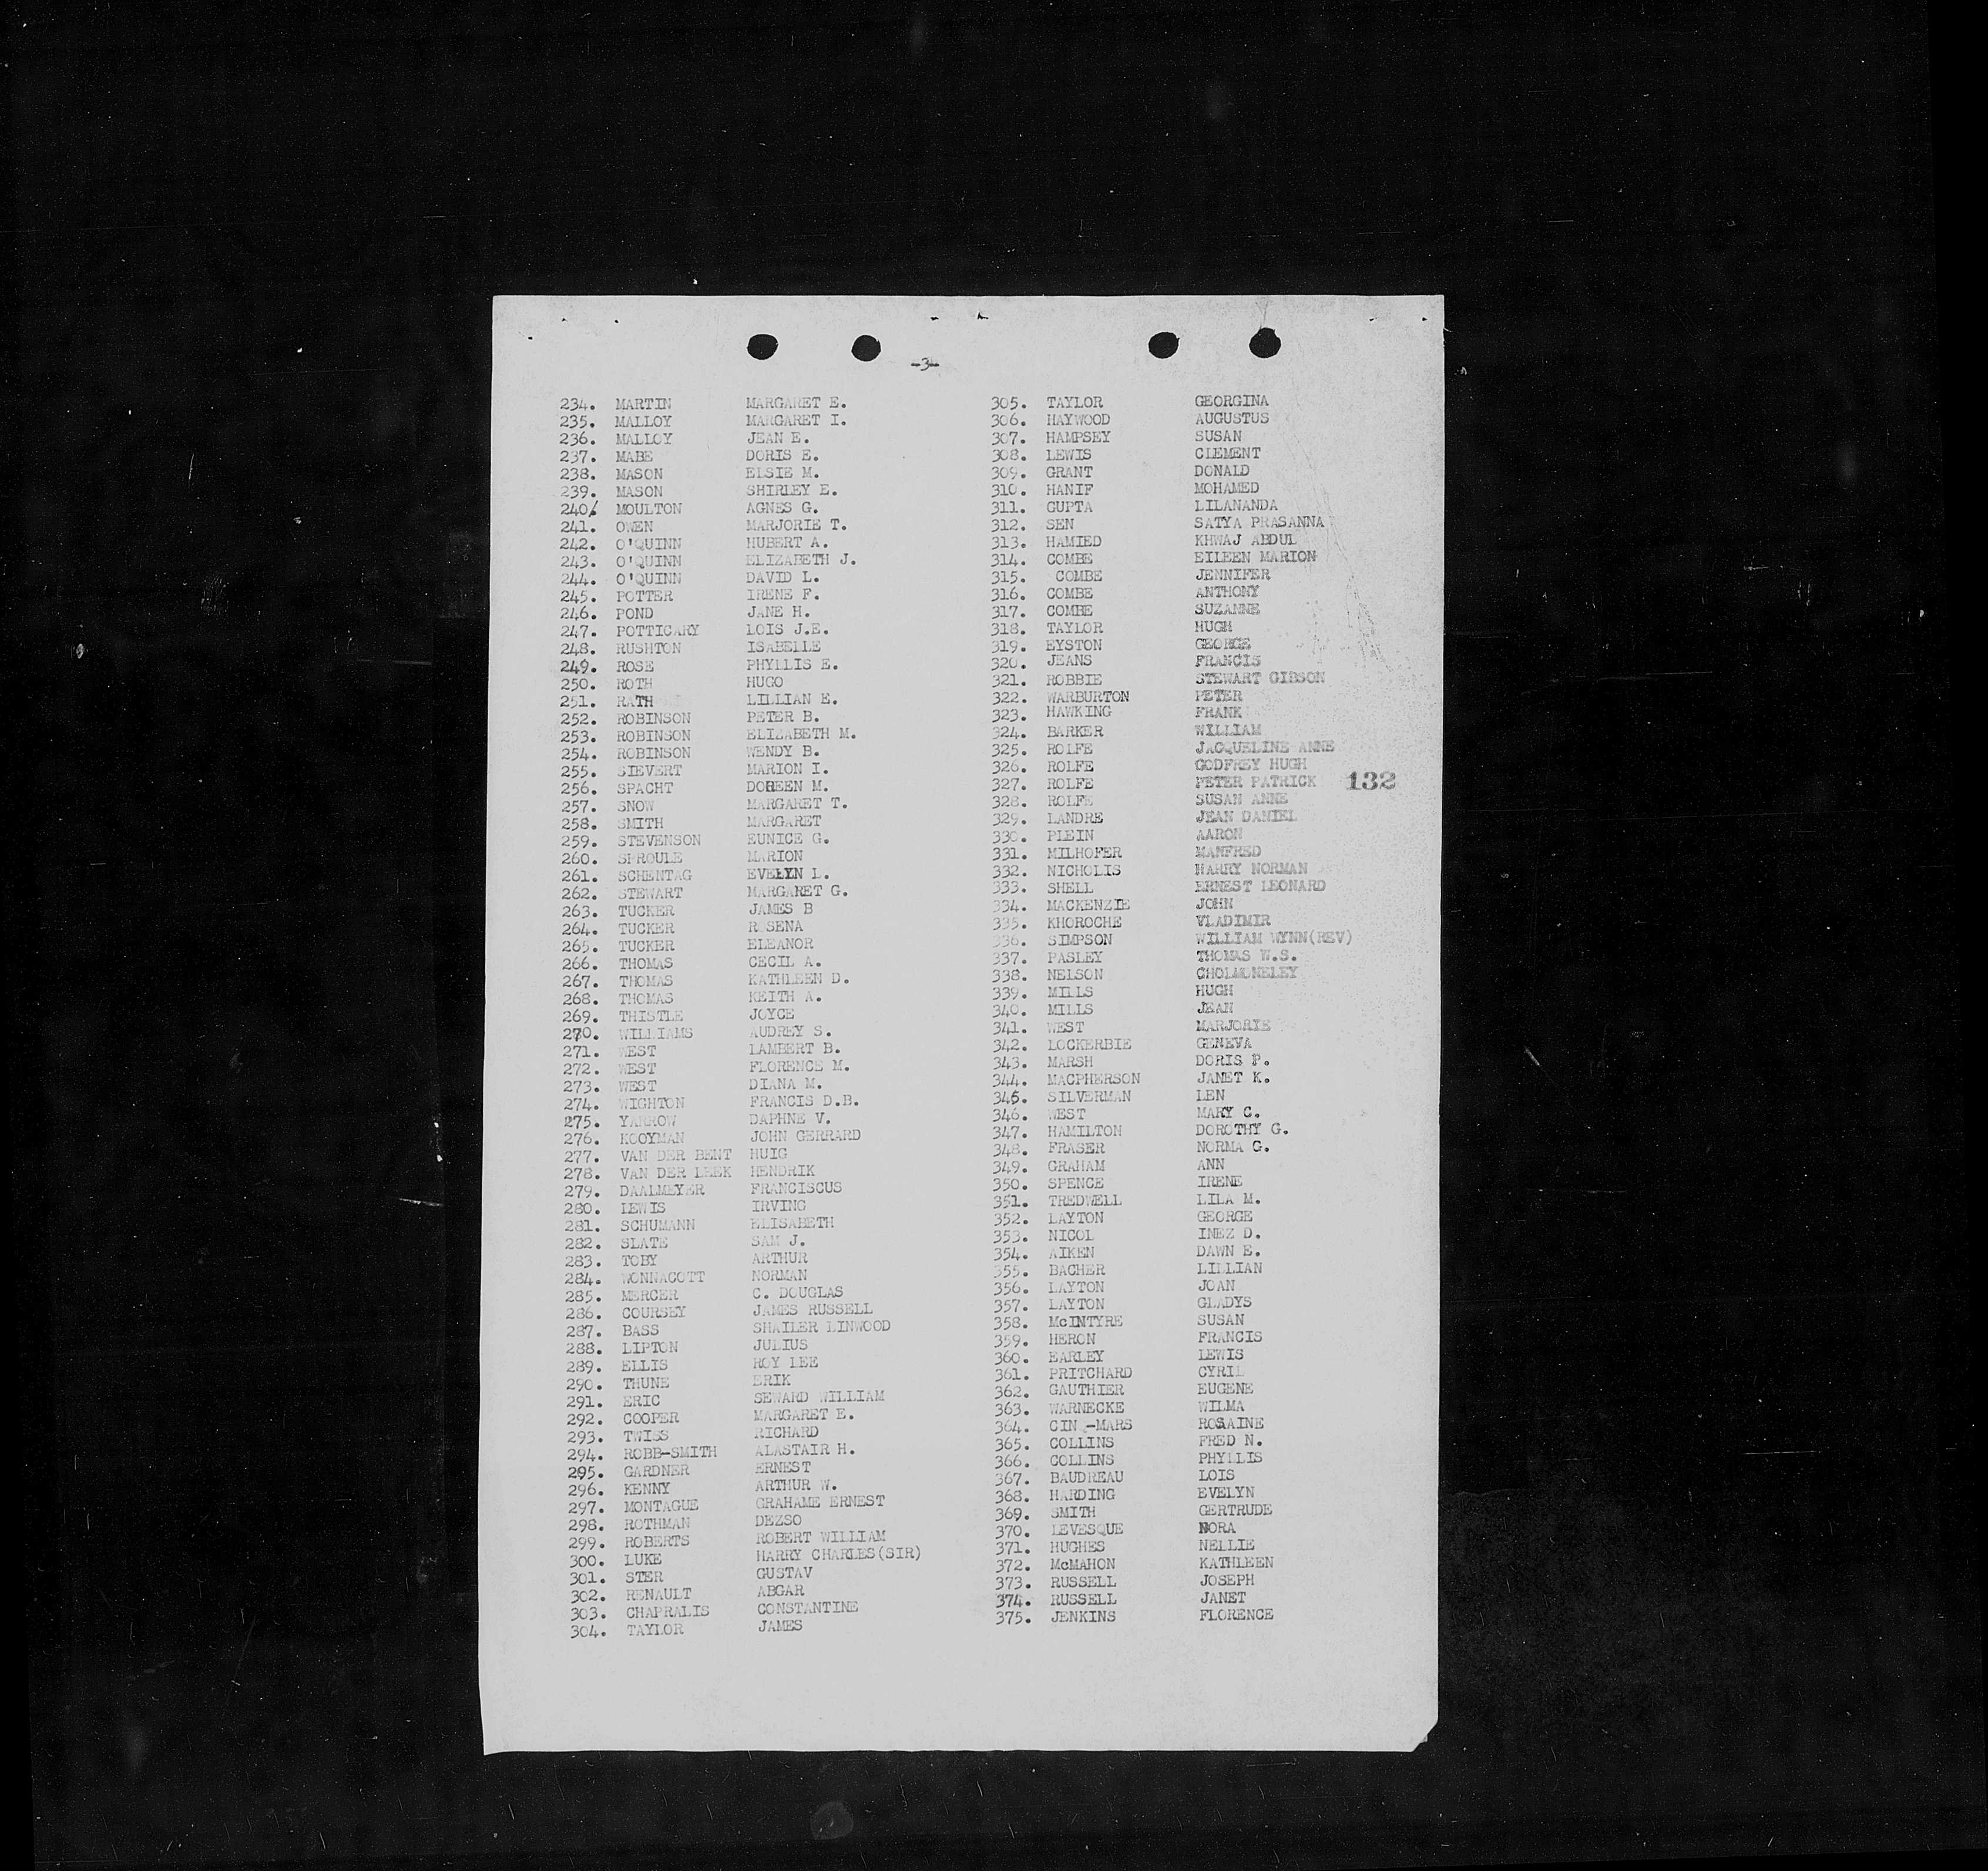 -3-
234. MARTIN MARGARET E.
235. MALLOY MARGARET I.
236. MALLOY JEAN E.
237. MABE DORIS E.
238. MASON ELSIE M.
239. MASON SHIRLEY E.
240. MOULTON AGNES G.
241. OWEN MARJORIE T.
242. O'QUINN HUBERT A.
243. O'QUINN ELIZABETH J.
244. O'QUINN DAVID L.
245. POTTER IRENE F.
246. POND JANE H.
247. POTTICARY LOIS J.E.
248. RUSHTON ISABELLE
249. ROSE PHYLLIS E.
250. ROTH HUGO
251. RATH LILLIAN E.
252. ROBINSON PETER B.
253. ROBINSON ELIZABETH M.
254. ROBINSON WENDY B.
255. SIEVERT MARION I.
256. SPACHT DOREEN M.
257. SNOW MARGARET T.
258. SMITH MARGARET
259. STEVENSON EUNICE G.
260. SPROULE MARION
261. SCHENTAG EVELYN L.
262. STEWART MARGARET G.
263. TUCKER JAMES B
264. TUCKER R SENA
265. TUCKER ELEANOR
266. THOMAS CECIL A.
267. THOMAS KATHLEEN D.
268. THOMAS KEITH A.
269. THISTLE JOYCE
270. WILLIAMS AUDREY S.
271. WEST LAMBERT B.
272. WEST FLORENCE M.
273. WEST DIANA M.
274. WIGHTON FRANCIS D.B.
275. YARROW DAPHNE V.
276. KOOYMAN JOHN GERRARD
277. VAN DER BENT HUIG
278. VAN DER LEEK HENDRIK
279. DAALMEYER FRANCISCUS
280. LEWIS IRVING
281. SCHUMANN ELISABETH
282. SLATE SAM J.
283. TOBY ARTHUR
284. WONNACOTT NORMAN
285. MERCER C. DOUGLAS
286. COURSEY JAMES RUSSELL
287. BASS SHAILER LINWOOD
288. LIPTON JULIUS
289. ELLIS ROY LEE
290. THUNE ERIK
291. ERIC SEWARD WILLIAM
292. COOPER MARGARET E.
293. TWISS RICHARD
294. ROBB-SMITH ALASTAIR H.
295. GARDNER ERNEST
296. KENNY ARTHUR W.
297. MONTAGUE GRAHAME ERNEST
298. ROTHMAN DEZSO
299. ROBERTS ROBERT WILLIAM
300. LUKE HARRY CHARLES(SIR)
301. STER GUSTAV
302. RENAULT ABGAR
303. CHAPRALIS CONSTANTINE
304. TAYLOR JAMES
305. TAYLOR GEORGINA
306. HAYWOOD AUGUSTUS
307. HAMPSEY SUSAN
308. LEWIS CLEMENT
309. GRANT DONALD
310. HANIF MOHAMED
311. GUPTA LILANANDA
312. SEN SATYA PRASANNA
313. HAMIED KHWAJ ABDUL
314. COMBE EILEEN MARION
315. COMBE JENNIFER
316. COMBE ANTHONY
317. COMBE SUZANNE
318. TAYLOR HUGH
319. EYSTON GEORGE
320. JEANS FRANCIS
321. ROBBIE STEWART GIBSON
322. WARBURTON PETER
323. HAWKING FRANK
324. BARKER WILLIAM
325. ROLFE JACQUELINE ANNE
326. ROLFE GODFREY HUGH
327. ROLFE PETER PATRICK 132
328. ROLFE SUSAN ANNE
329. LANDRE JEAN DANIEL
330. PLEIN AARON
331. MILHOFER MANFRED
332. NICHOLIS HARRY NORMAN
333. SHELL ERNEST LEONARD
334. MACKENZIE JOHN
335. KHOROCHE VLADIMIR
336. SIMPSON WILLIAM WYNN(REV)
337. PASLEY THOMAS W.S.
338. NELSON CHOLMONELEY
339. MILLS HUGH
340. MILLS JEAN
341. WEST MARJORIE
342. LOCKERBIE GENEVA
343. MARSH DORIS P.
344. MACPHERSON JANET K.
345. SILVERMAN LEN
346. WEST MARY C.
347. HAMILTON DOROTHY G.
348. FRASER NORMA G.
349. GRAHAM ANN
350. SPENCE IRENE
351. TREDWELL LILA M.
352. LAYTON GEORGE
353. NICOL INEZ D.
354. AIKEN DAWN E.
355. BACHER LILLIAN
356. LAYTON JOAN
357. LAYTON GLADYS
358. McINTYRE SUSAN
359. HERON FRANCIS
360. EARLEY LEWIS
361. PRITCHARD CYRIL
362. GAUTHIER EUGENE
363. WARNECKE WILMA
364. CIN -MARS ROSAINE
365. COLLINS FRED N.
366. COLLINS PHYLLIS
367. BAUDREAU LOIS
368. HARDING EVELYN
369. SMITH GERTRUDE
370. LEVESQUE NORA
371. HUGHES NELLIE
372. McMAHON KATHLEEN
373. RUSSELL JOSEPH
374. RUSSELL JANET
375. JENKINS FLORENCE